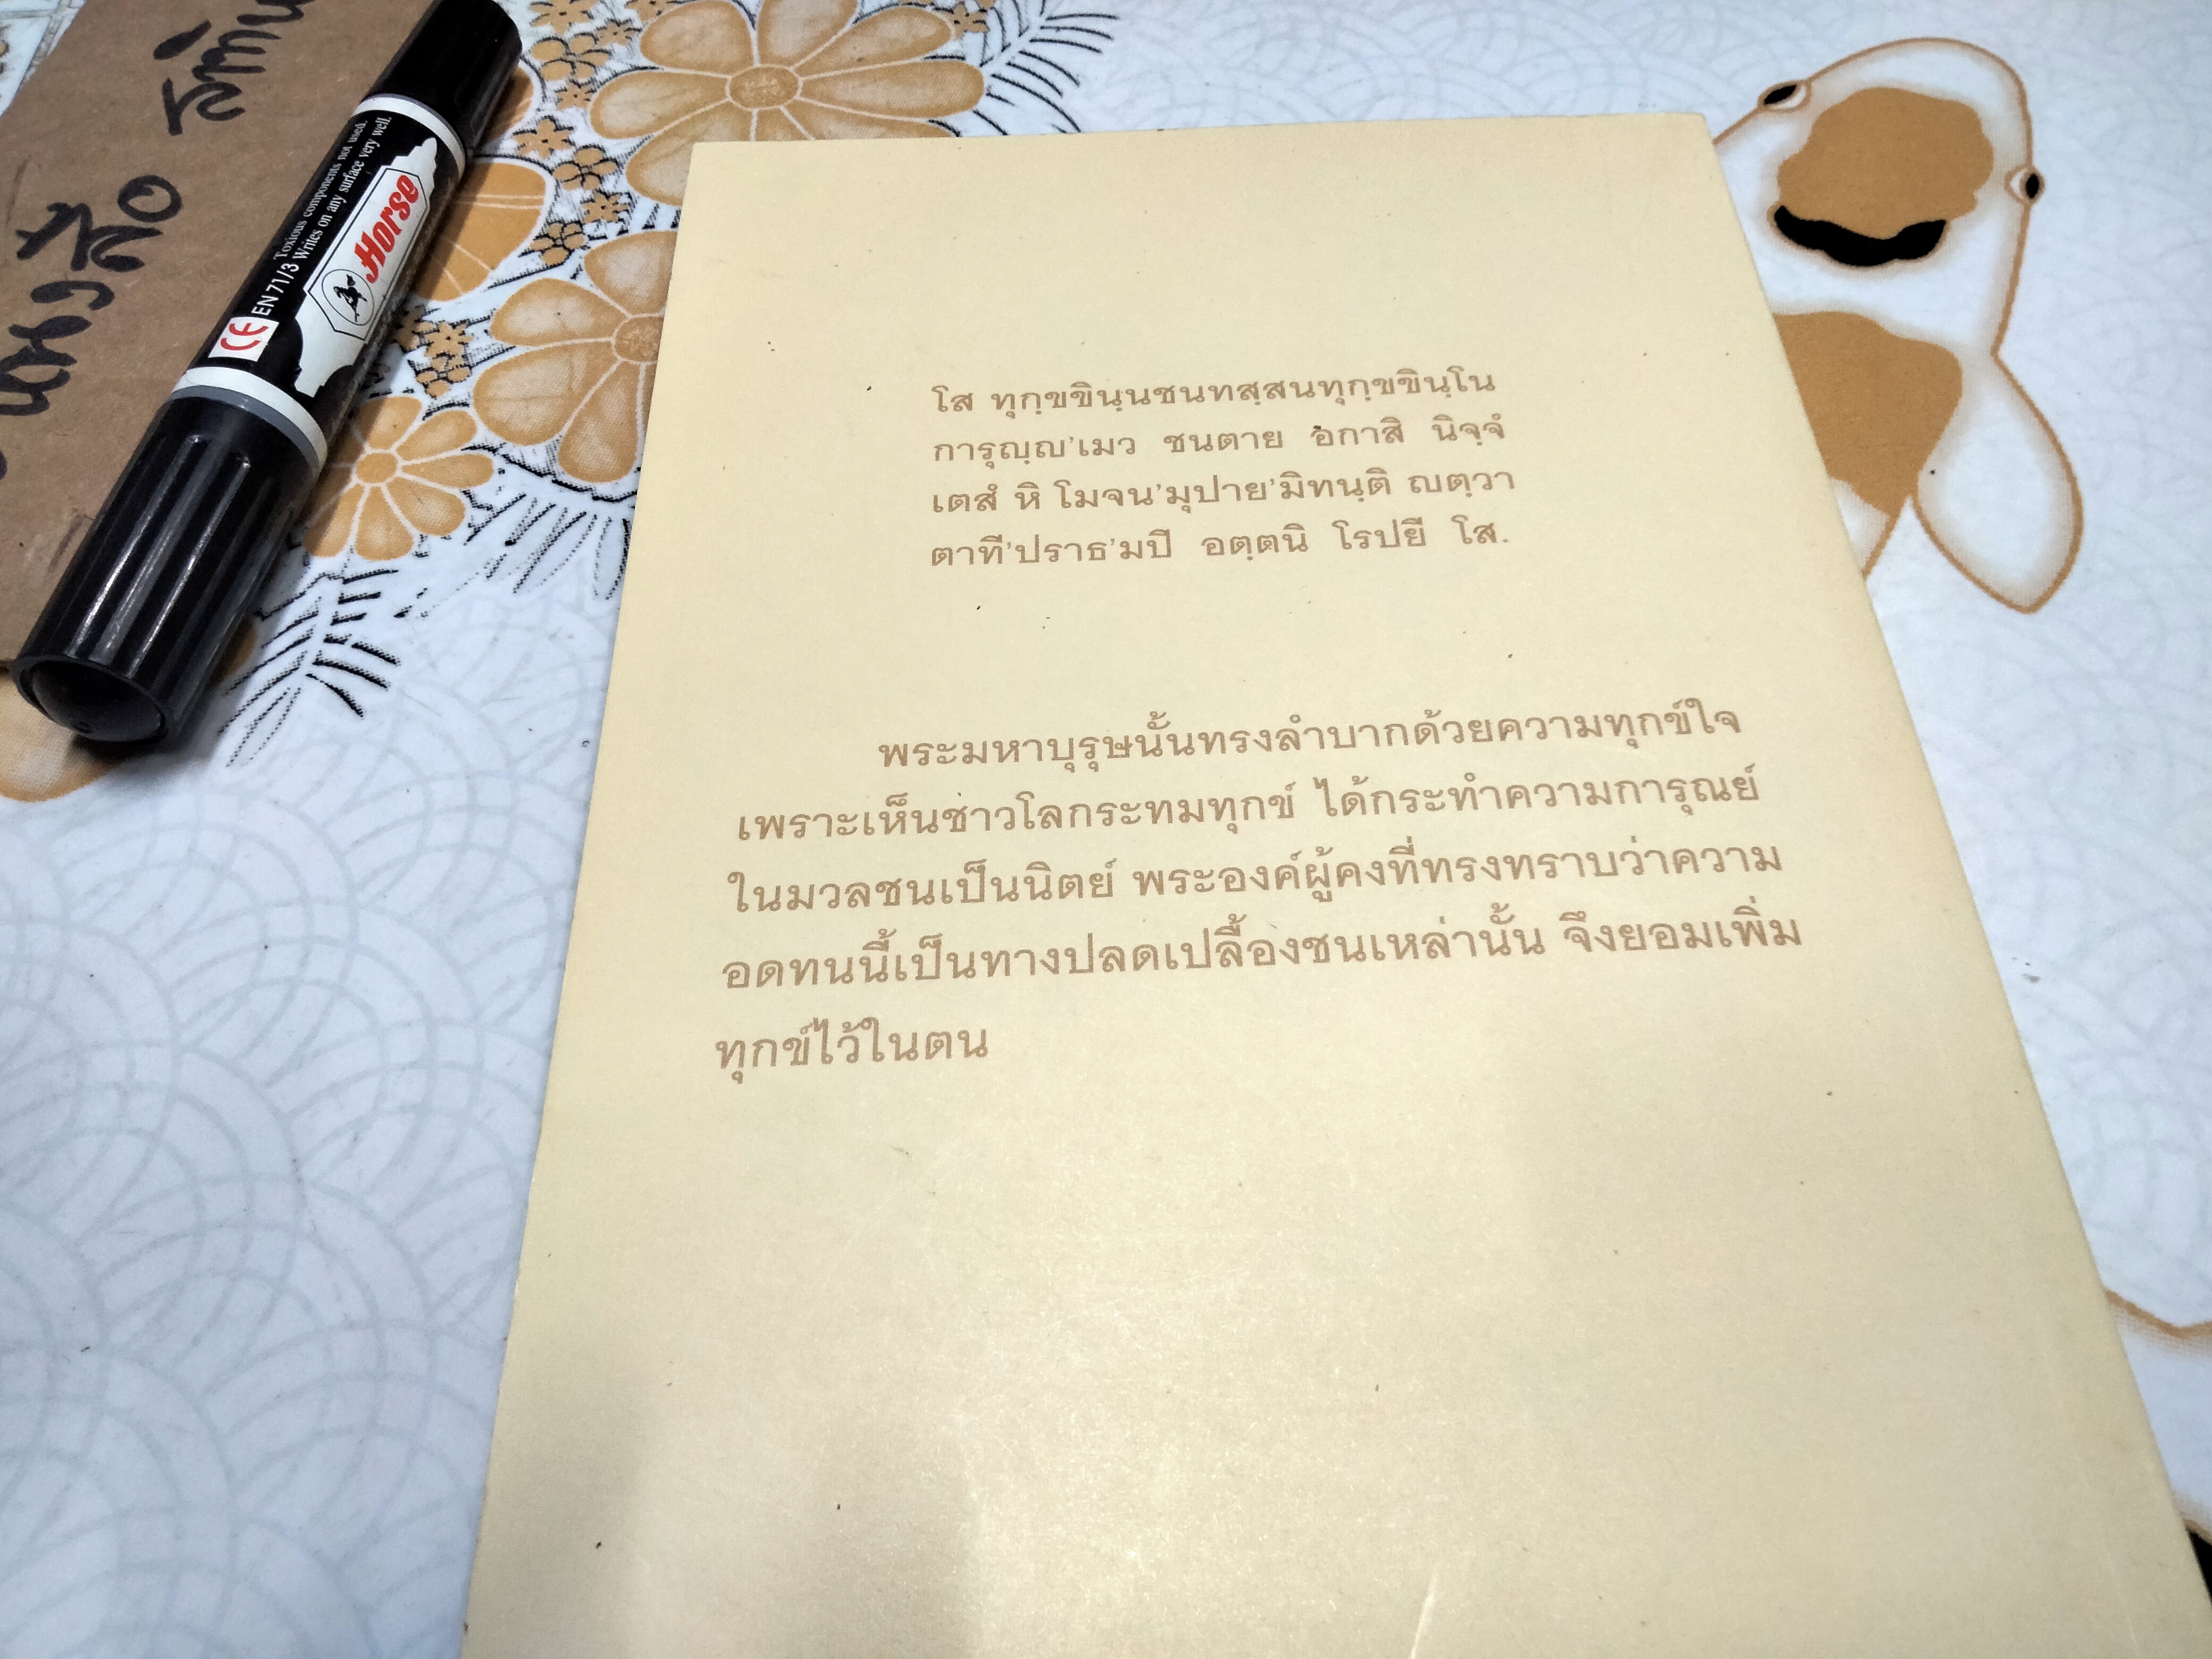 หนังสือ
Toxious components not used.
EN 71/3 Writes on any surface very well.
CE
Horse
โส ทุกฺขขินฺนชนทสฺสนทุกฺขขินฺโน
การุญฺญ'เมว ชนตาย อกาสิ นิจฺจํ
เตสํ หิ โมจน'มุปาย'มิทนฺติ ญตฺวา
ตาที'ปราธ'มปี อตฺตนิ โรปยี โส.
พระมหาบุรุษนั้นทรงลำบากด้วยความทุกข์ใจ
เพราะเห็นชาวโลกระทมทุกข์ ได้กระทำความการุณย์
ในมวลชนเป็นนิตย์ พระองค์ผู้คงที่ทรงทราบว่าความ
อดทนนี้เป็นทางปลดเปลื้องชนเหล่านั้น จึงยอมเพิ่ม
ทุกข์ไว้ในตน